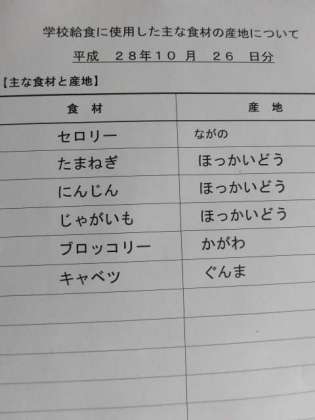 学校給食に使用した主な食材の産地について
平成 28年10 月 26 日分
【主な食材と産地】
食 材 産 地
セロリー ながの
たまねぎ ほっかいどう
にんじん ほっかいどう
じゃがいも ほっかいどう
ブロッコリー かがわ
キャベツ ぐんま